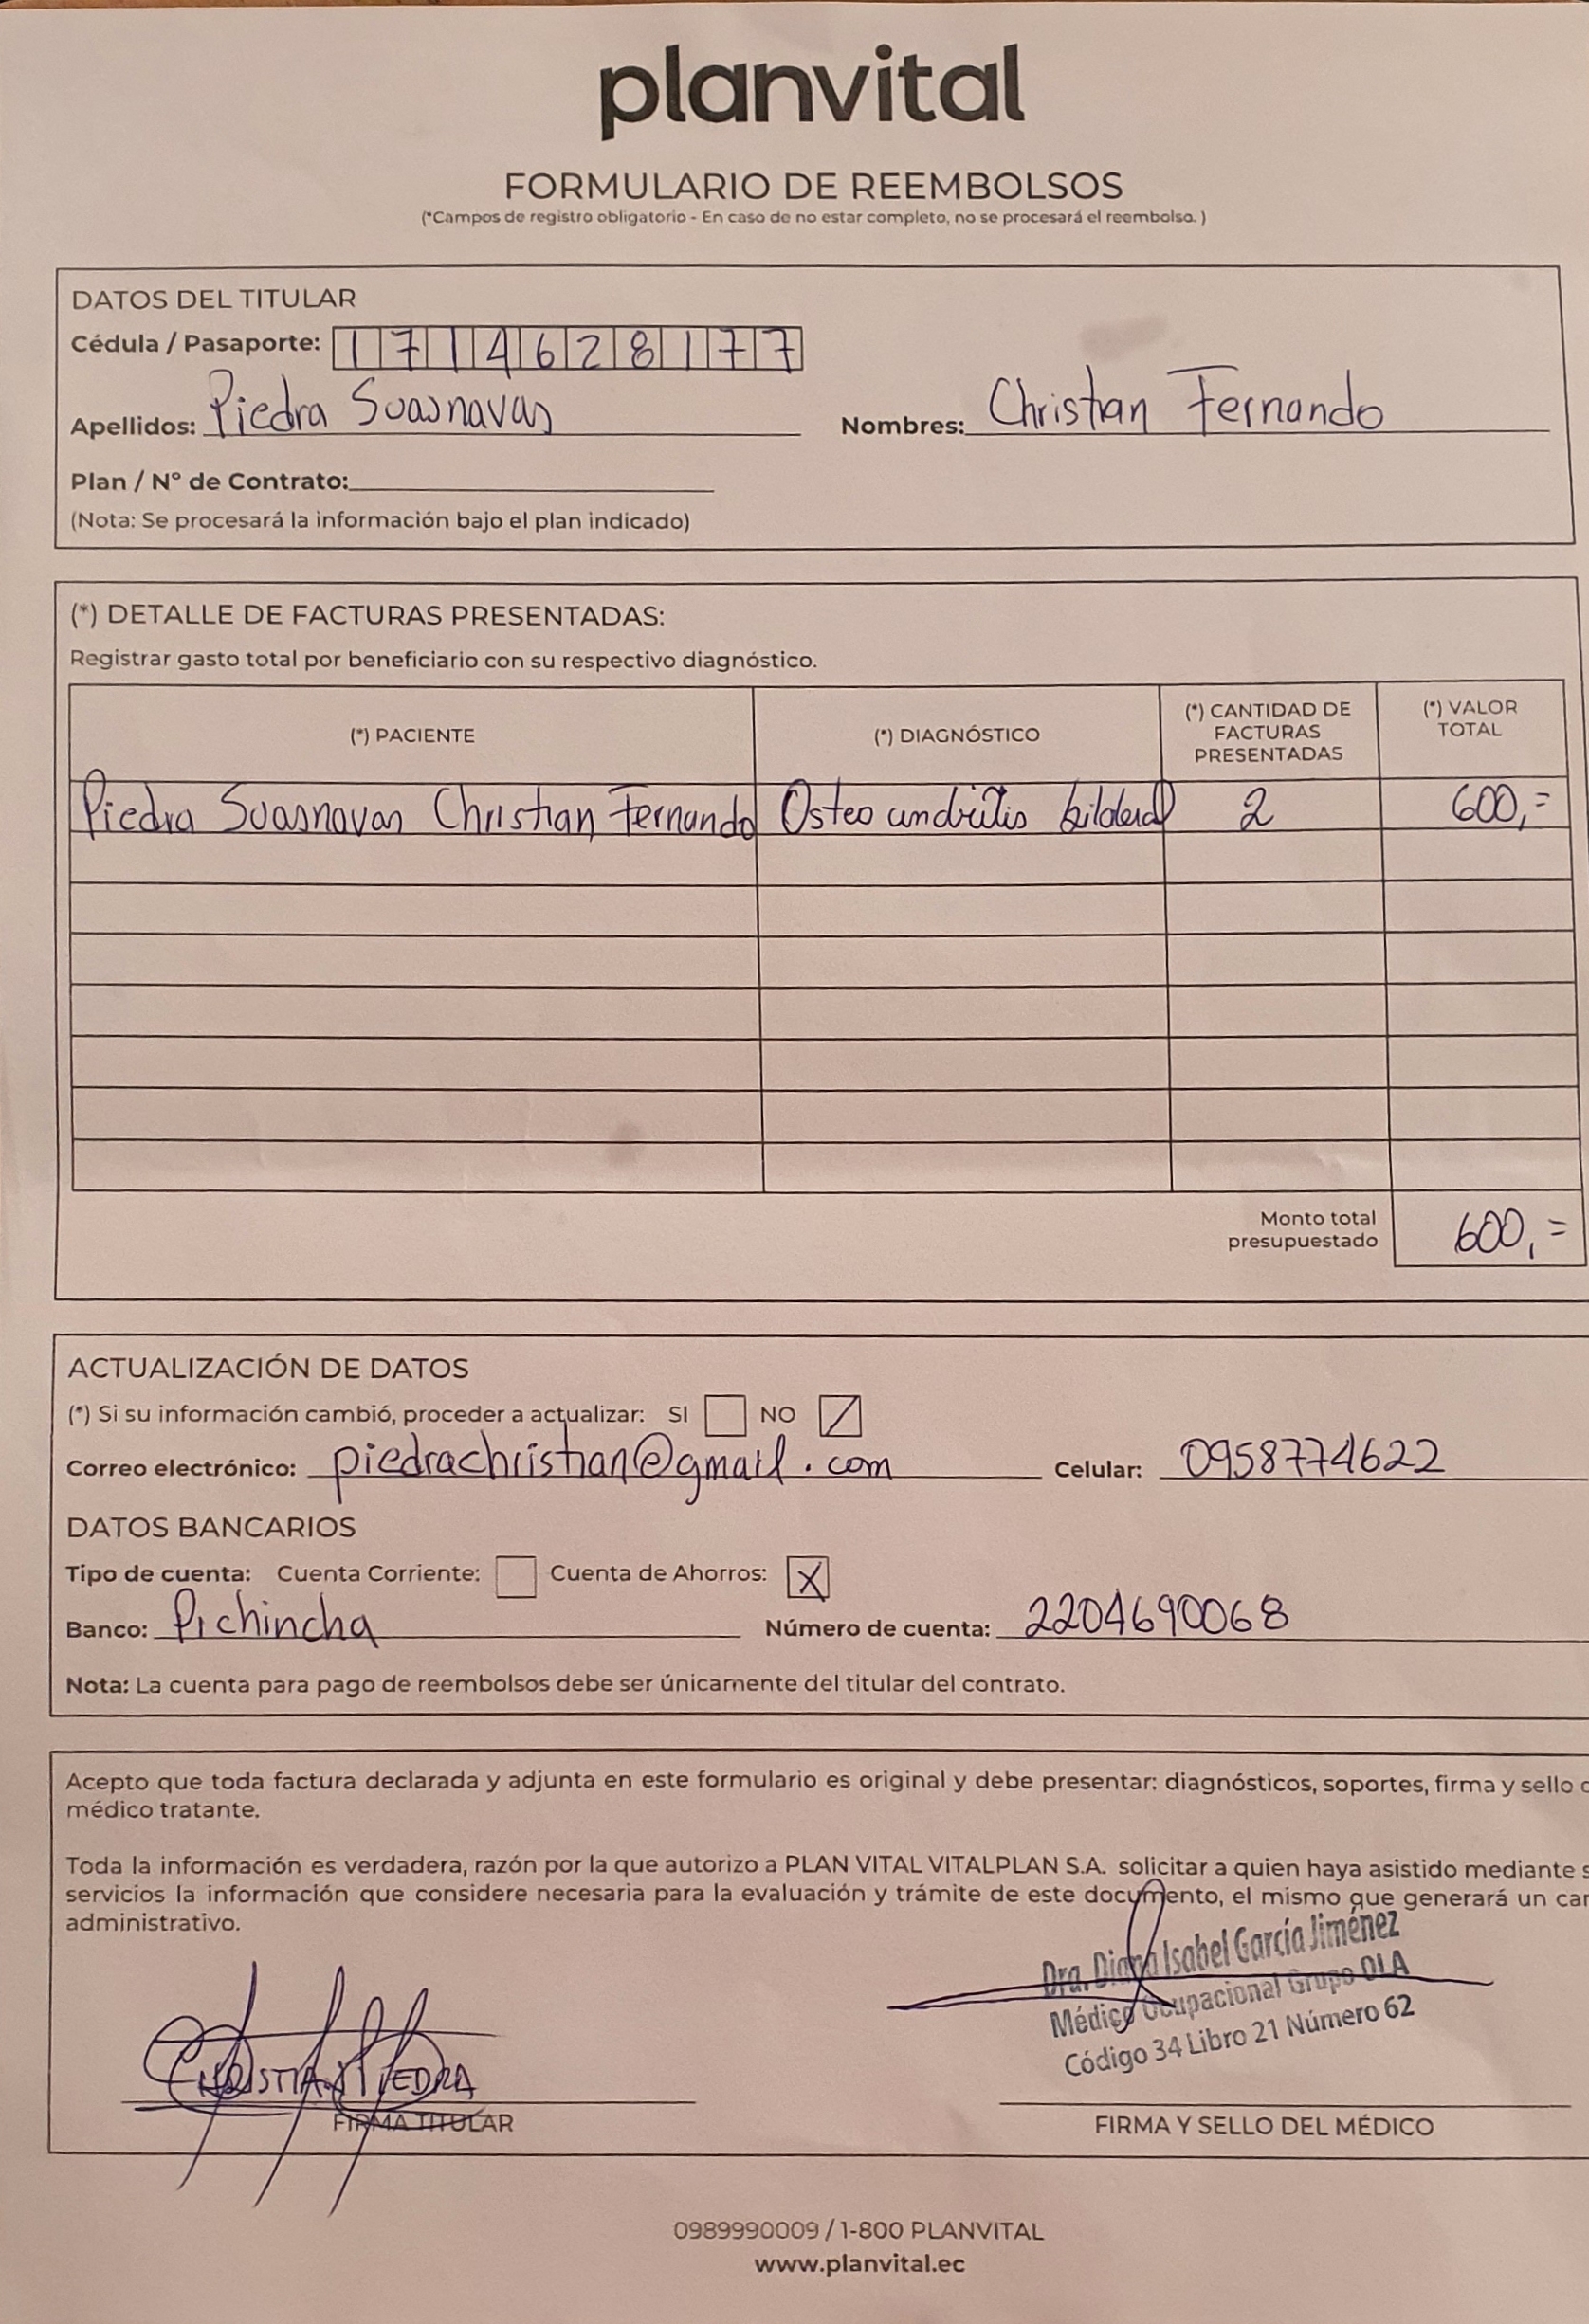 planvital
FORMULARIO DE REEMBOLSOS
(*Campos de registro obligatorio - En caso de no estar completo, no se procesará el reembolso. )
DATOS DEL TITULAR
Cédula / Pasaporte: 1714628177
Apellidos: Piedra Suasnavas Nombres: Christian Fernando
Plan / Nº de Contrato:
(Nota: Se procesará la información bajo el plan indicado)
(*) DETALLE DE FACTURAS PRESENTADAS:
Registrar gasto total por beneficiario con su respectivo diagnóstico.
(*) PACIENTE (*) DIAGNÓSTICO (*) CANTIDAD DE FACTURAS PRESENTADAS (*) VALOR TOTAL
Piedra Suasnavas Christian Fernando Osteo 2 600,=
Monto total presupuestado 600,=
ACTUALIZACIÓN DE DATOS
(*) Si su información cambió, proceder a actualizar: SI NO
Correo electrónico: piedrachristian@gmail.com Celular: 0958774622
DATOS BANCARIOS
Tipo de cuenta: Cuenta Corriente: Cuenta de Ahorros: X
Banco: Pichincha Número de cuenta: 2204690068
Nota: La cuenta para pago de reembolsos debe ser únicamente del titular del contrato.
Acepto que toda factura declarada y adjunta en este formulario es original y debe presentar: diagnósticos, soportes, firma y sello
médico tratante.
Toda la información es verdadera, razón por la que autorizo a PLAN VITAL VITALPLAN S.A. solicitar a quien haya asistido mediante
servicios la información que considere necesaria para la evaluación y trámite de este documento, el mismo que generará un
administrativo.
Dra. Diana Isabel García Jiménez
Médico Ocupacional Grupo OLA
Código 34 Libro 21 Número 62
CHRISTIAN PIEDRA
FIRMA TITULAR
FIRMA Y SELLO DEL MÉDICO
0989990009 / 1-800 PLANVITAL
www.planvital.ec